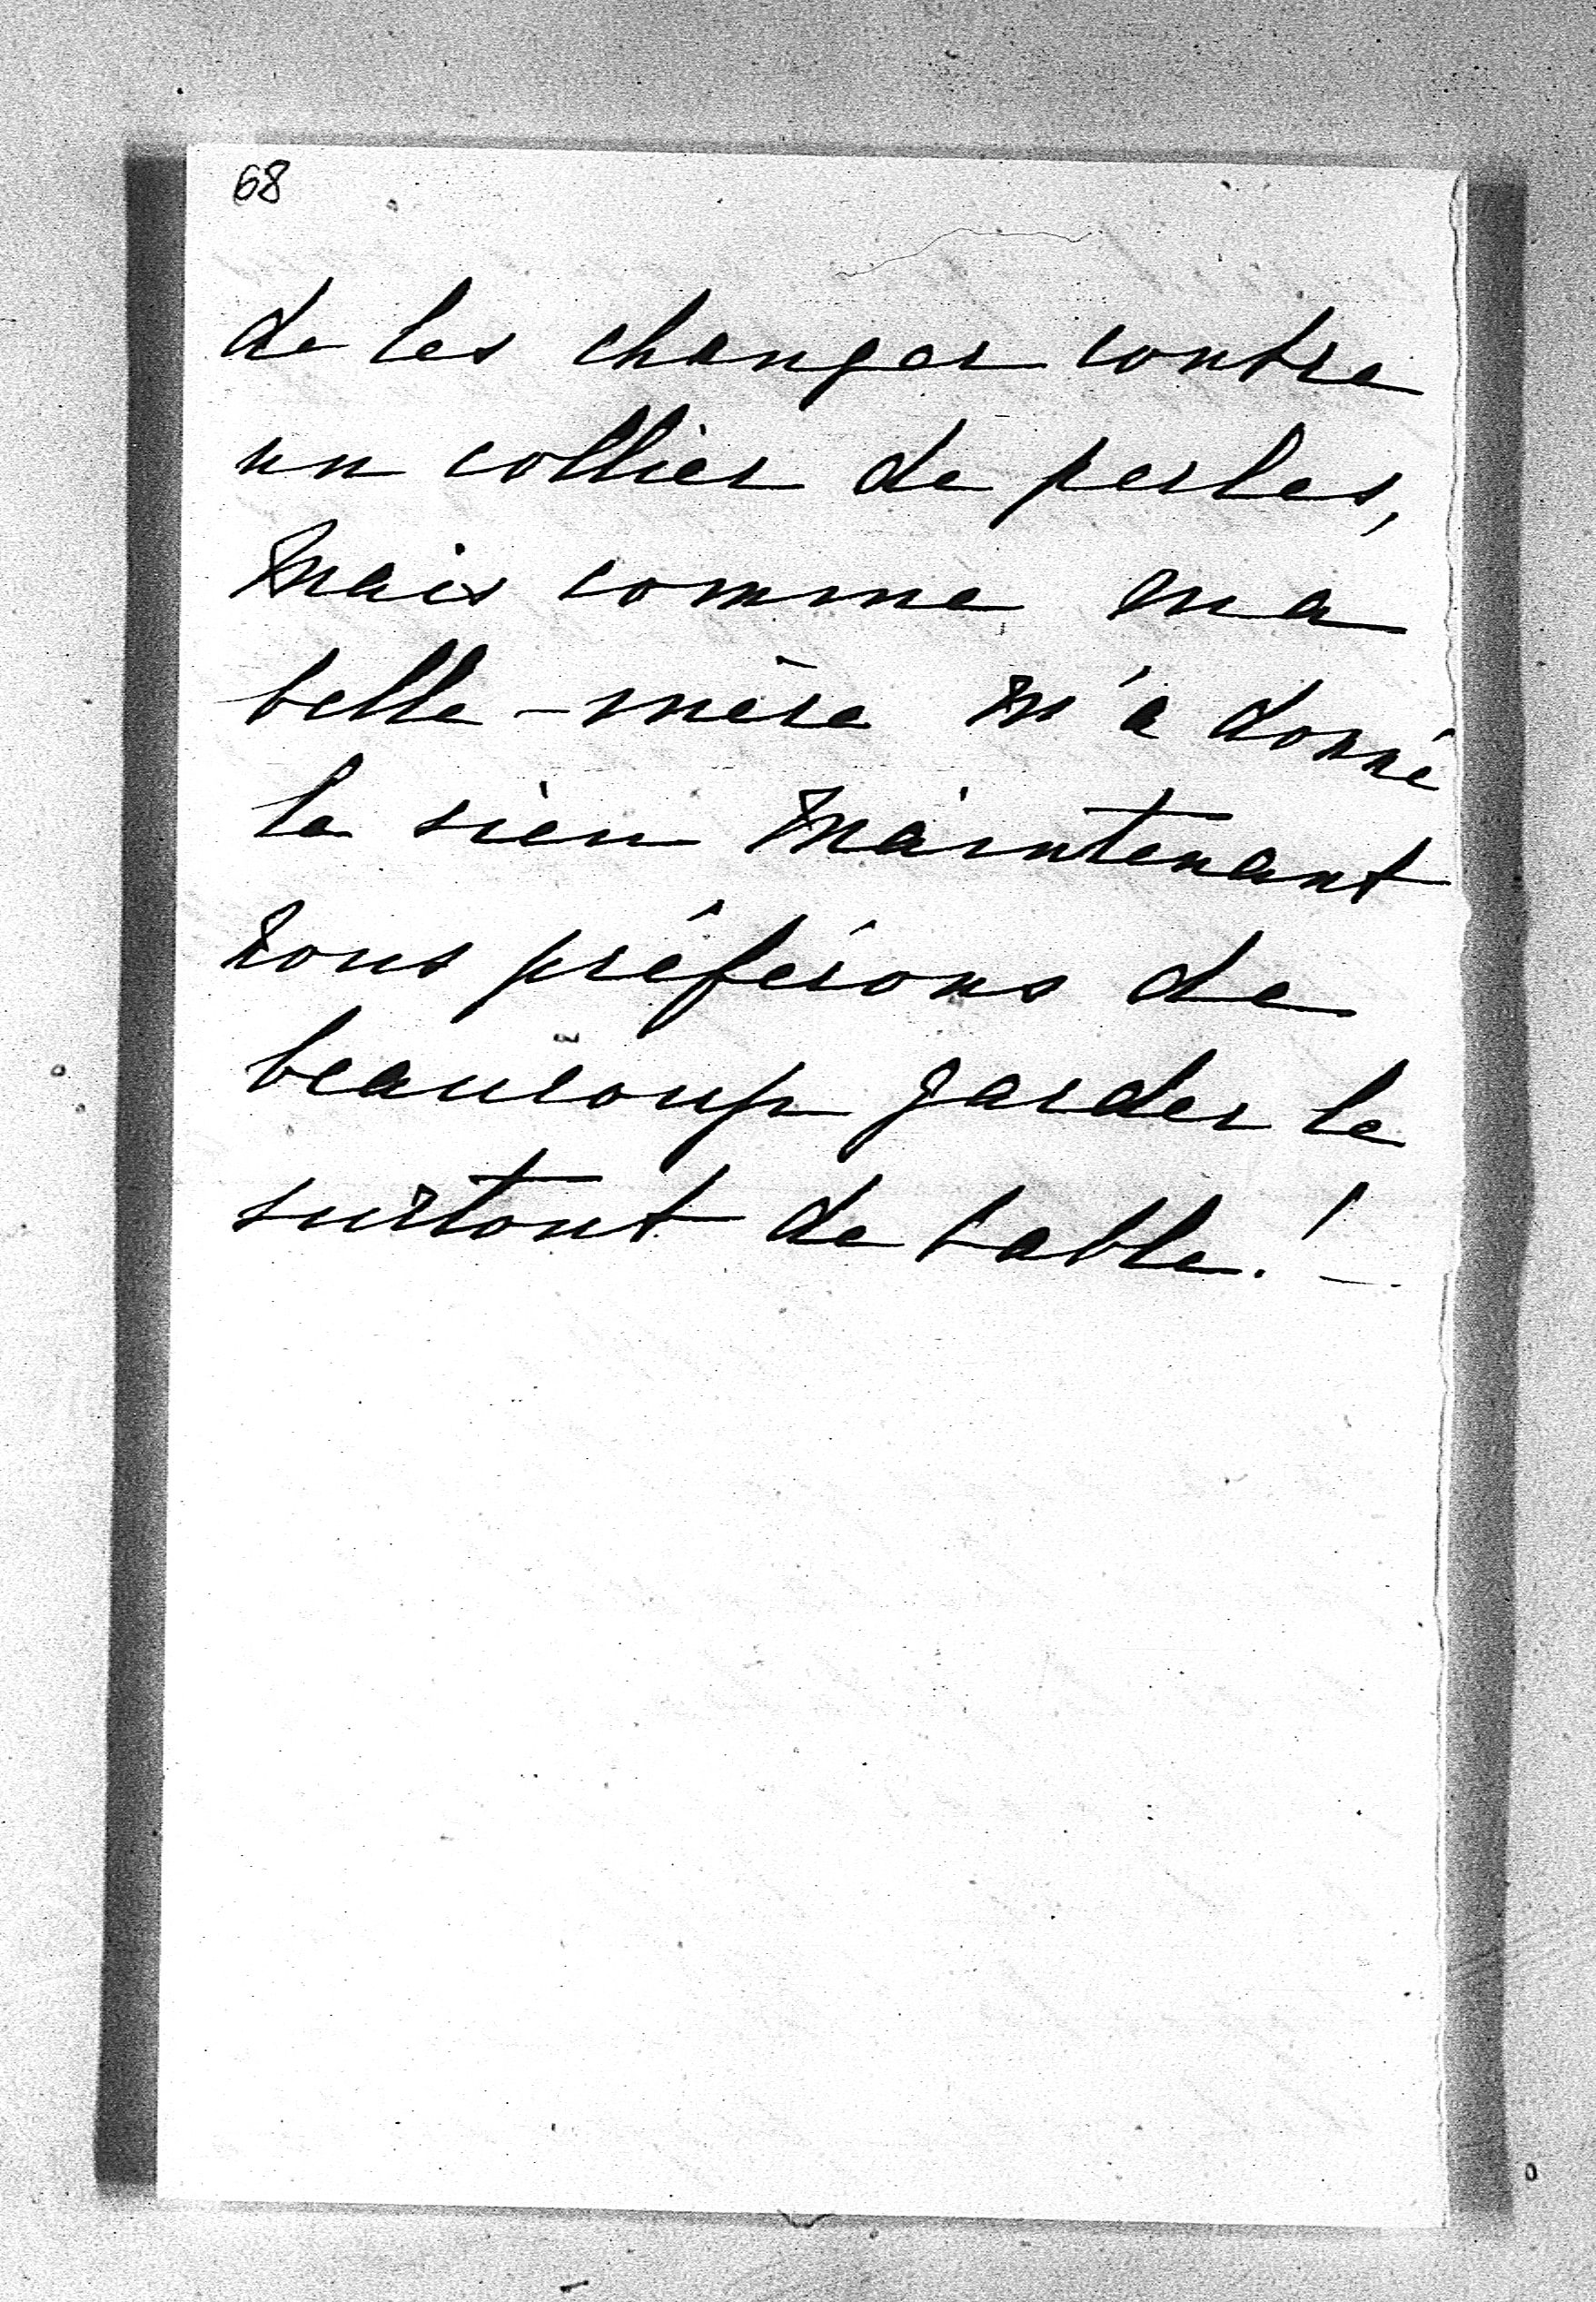 68
de les changer contre
un collier de perles,
mais comme ma
belle-mère m'a donné
le sien maintenant
nous préferons de
beaucoup garder le
surtout de table! -